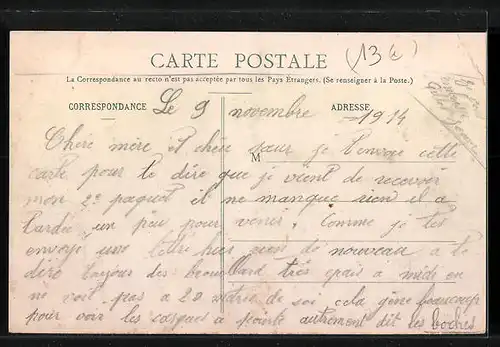 CARTE POSTALE
(13a)
La Correspondance au recto n'est pas acceptée par tous les Pays Étrangers. (Se renseigner à la Poste.)
CORRESPONDANCE
ADRESSE
Le 9 novembre 1914
Chère mère et chère sœur je t'envoie cette
M
carte pour te dire que je vient de recevoir
mon 2e paquet il ne manque rien il a
tardé un peu pour venir. Comme je t'es
envoyé une lettre hier rien de nouveau a te
dire toujour des brouillard très épais a midi on
ne voit pas a 20 mètre de soi cela gêne beaucoup
pour voir les casques a pointe autrement dit les boches